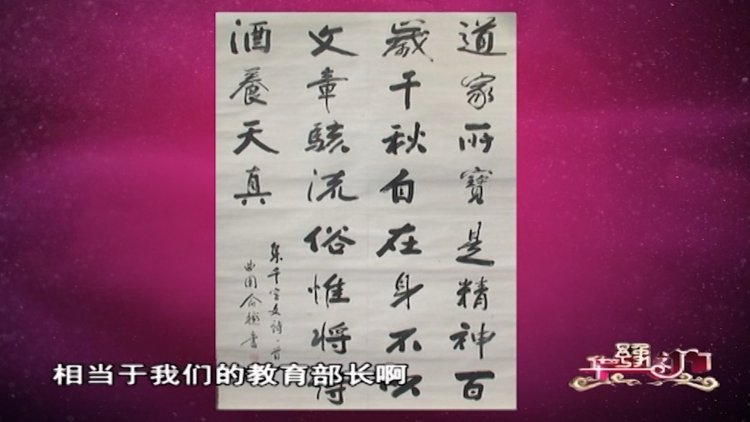 道家所寶是精神百
歲千秋自在身不以
文章駭流俗惟將詩
酒養天真
集千字文詩一首
曲園俞樾書
相当于我们的教育部长啊
华豫之门